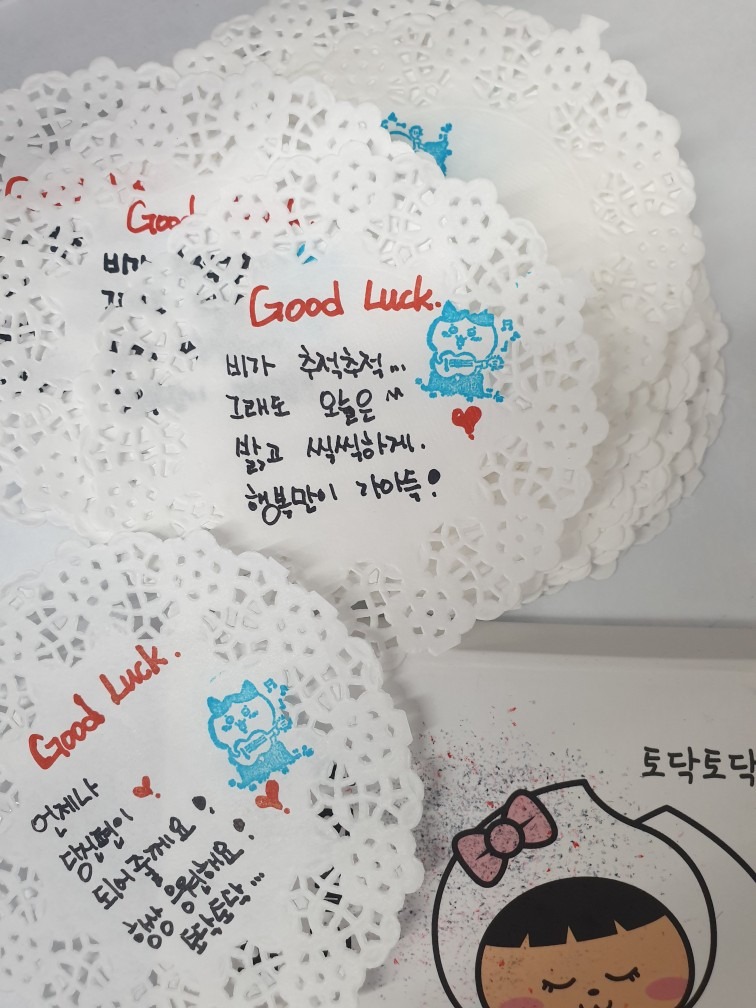 Good Luck.
비가 추적추적...
그래도 오늘은 ^^
밝고 씩씩하게.
행복만이 가아득!
Good Luck.
언제나
당신편이
되어 줄게요!
항상 응원해요!
토닥토닥...
토닥토닥
Good
비가